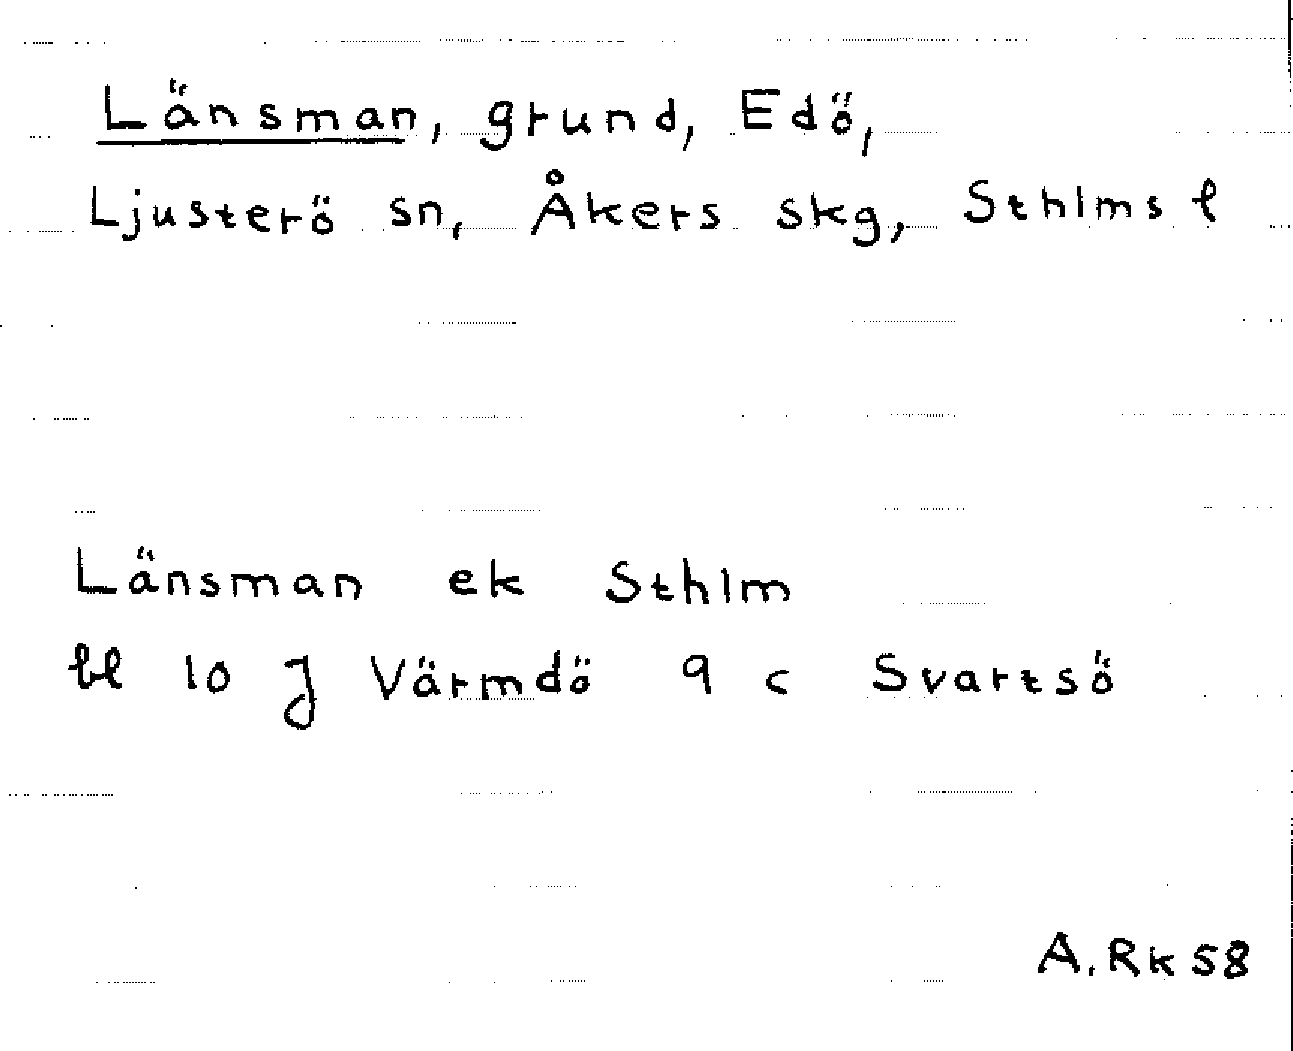 Länsman, grund, Edö,
Ljusterö sn, Åkers skg, Sthlms l
Länsman ek Sthlm
bl 10 J Värmdö 9 c Svartsö
A. Rk 58